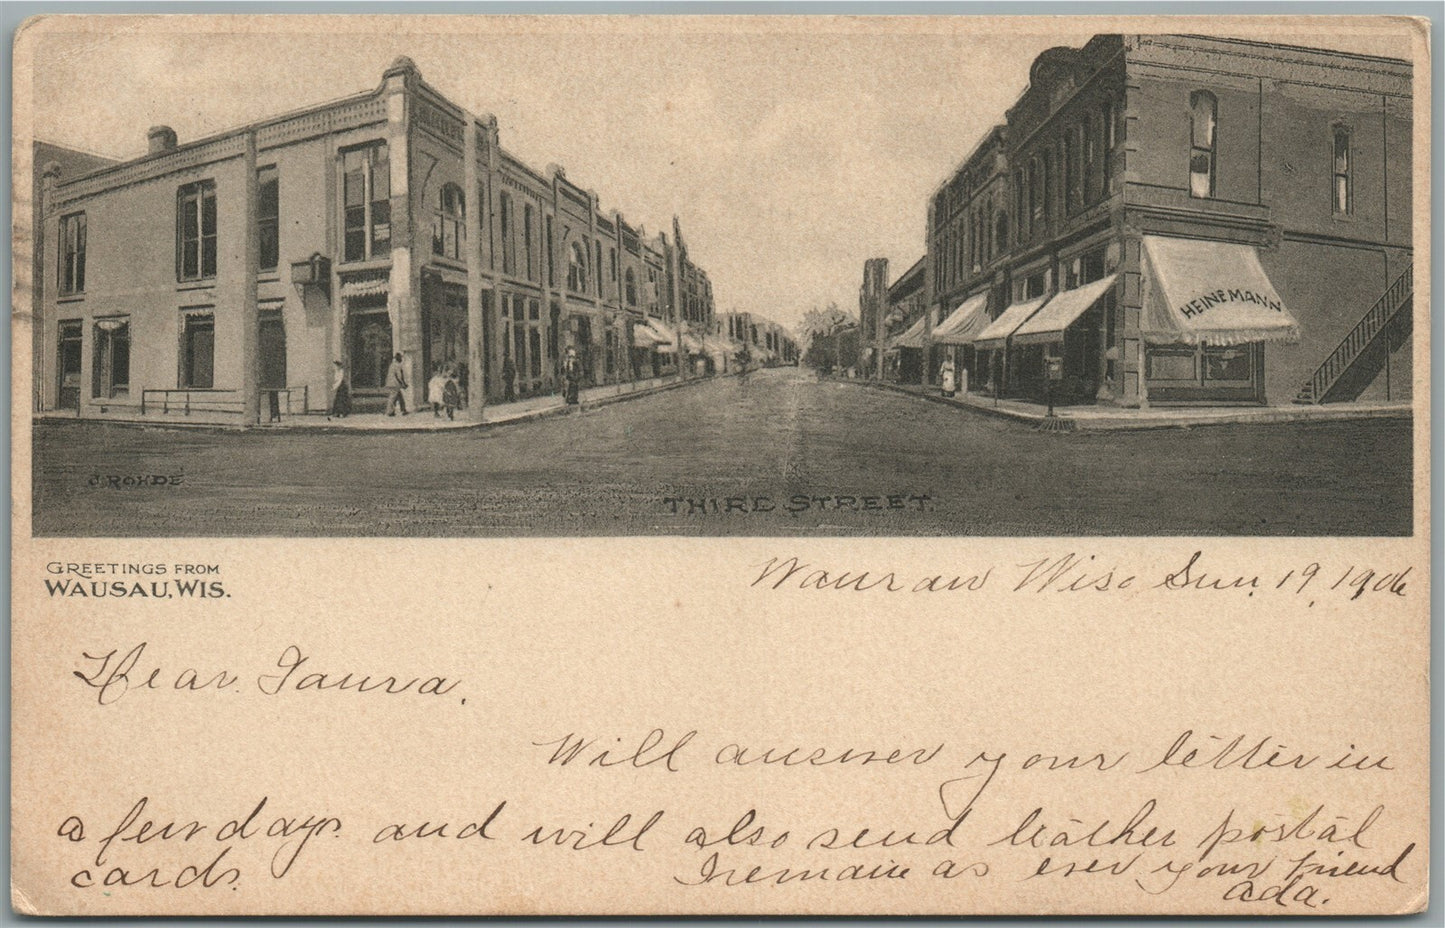 HEINEMANN
J. ROHDE
THIRD STREET.
GREETINGS FROM
WAUSAU, WIS.
Wausau Wisc Sun, 19, 1906
Dear Laura,
Will answer your letter in
a few days. and will also send leather postal
cards.
I remain as ever your friend
Ada.